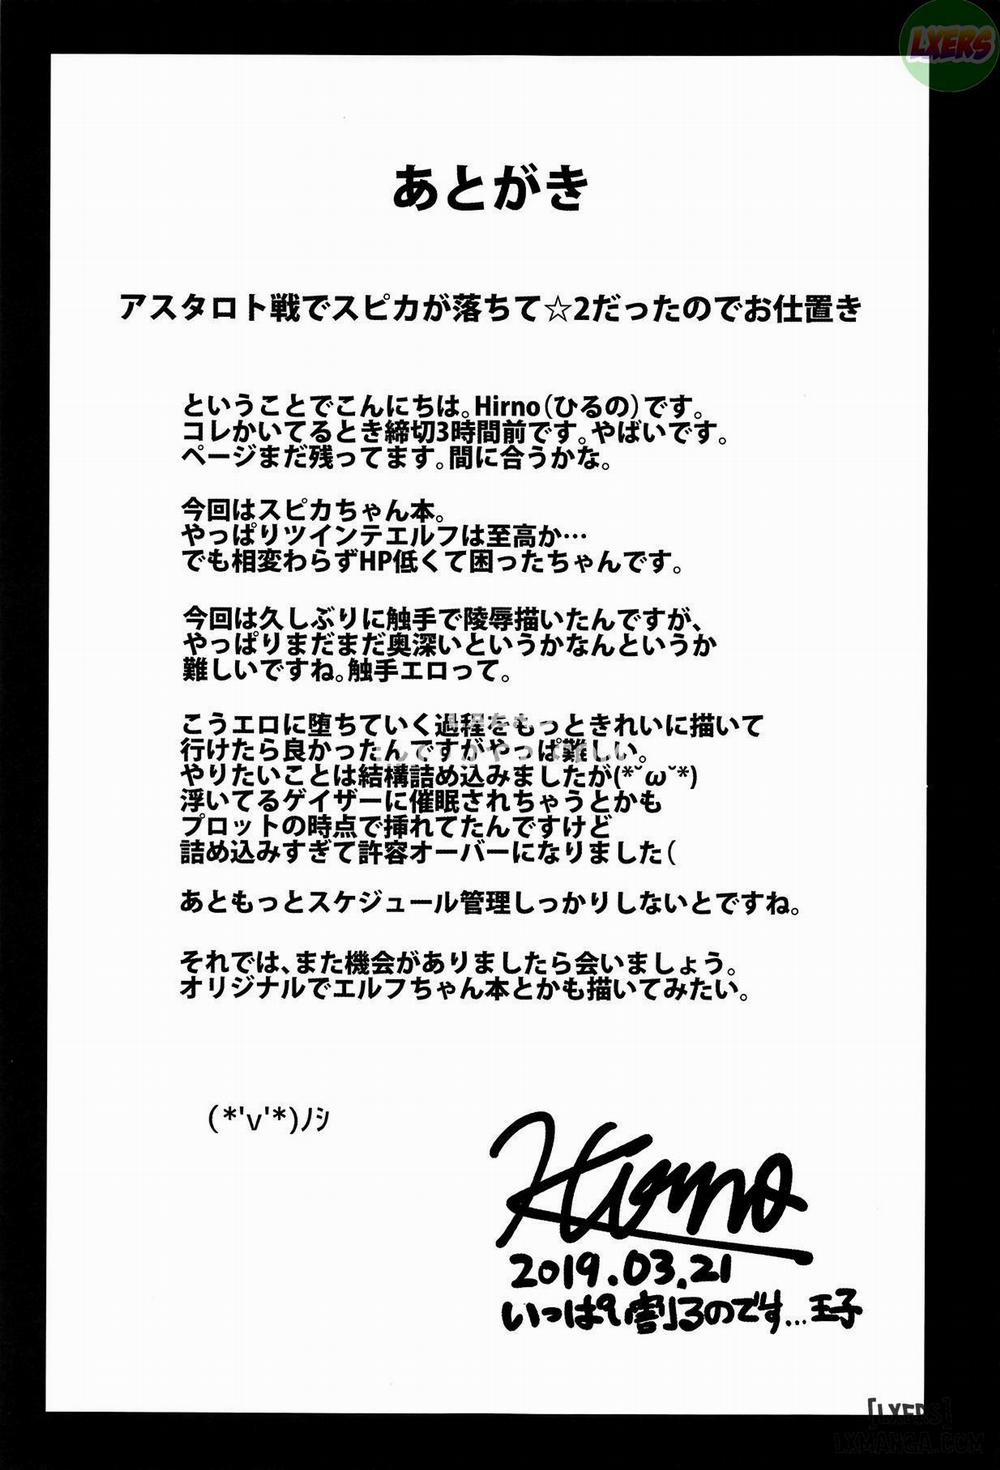 LXERS
あとがき
アスタロト戦でスピカが落ちて☆2だったのでお仕置き
ということでこんにちは。Hirno(ひるの)です。
コレかいてるとき締切3時間前です。やばいです。
ページまだ残ってます。間に合うかな。
今回はスピカちゃん本。
やっぱりツインテエルフは至高か…
でも相変わらずHP低くて困ったちゃんです。
今回は久しぶりに触手で陵辱描いたんですが、
やっぱりまだまだ奥深いというかなんというか
難しいですね。触手エロって。
こうエロに堕ちていく過程をもっときれいに描いて
行けたら良かったんですがやっぱ難しい。
やりたいことは結構詰め込みましたが(*˘ω˘*)
浮いてるゲイザーに催眠されちゃうとかも
プロットの時点で挿れてたんですけど
詰め込みすぎて許容オーバーになりました(
あともっとスケジュール管理しっかりしないとですね。
それでは、また機会がありましたら会いましょう。
オリジナルでエルフちゃん本とかも描いてみたい。
(*'v'*)ノシ
Hirno
2019.03.21
いっぱい割るのです…玉子
[LXERS]
LXMANGA.COM